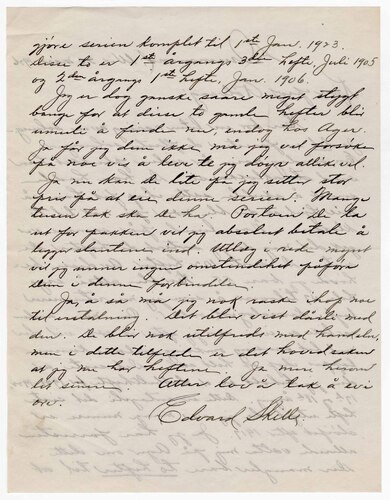 gjöre serien komplet til 1st Jan. 1923.
Disse to er 1st årgangs 3die hefte, Juli 1905
og 2den årgangs 1st hefte, Jan. 1906.
Jeg er dog ganske saare meget stygt
bange for at disse to gamle hefter blir
umuli å finde nu, endog hos Ager.
Ja får jeg dem ikke må jeg vel forsöke
på noe vis å leve te jeg döyr allikevel.
Ja nu kan De lite på jeg sitter stor
pris på at eie denne serien. Mange
tusen tak ska De ha. Portoen De la
ut for pakken vil jeg absolut betale å
legger slantene ind. Utlæg i rede mynt
vil jeg under ingen omstendihet påföre
Dem i denne forbindelse.
Ja, å så må jeg nok raske ihop noe
til erstatning. Det blir vist dårli med
den. De blir nok utilfreds med handelen,
men i dette tilfelde er det hovedsaken
at jeg nu har heftene. Ja mere herom
litt senere. Atter lov å tak å evi
ære.
Edvard Skille